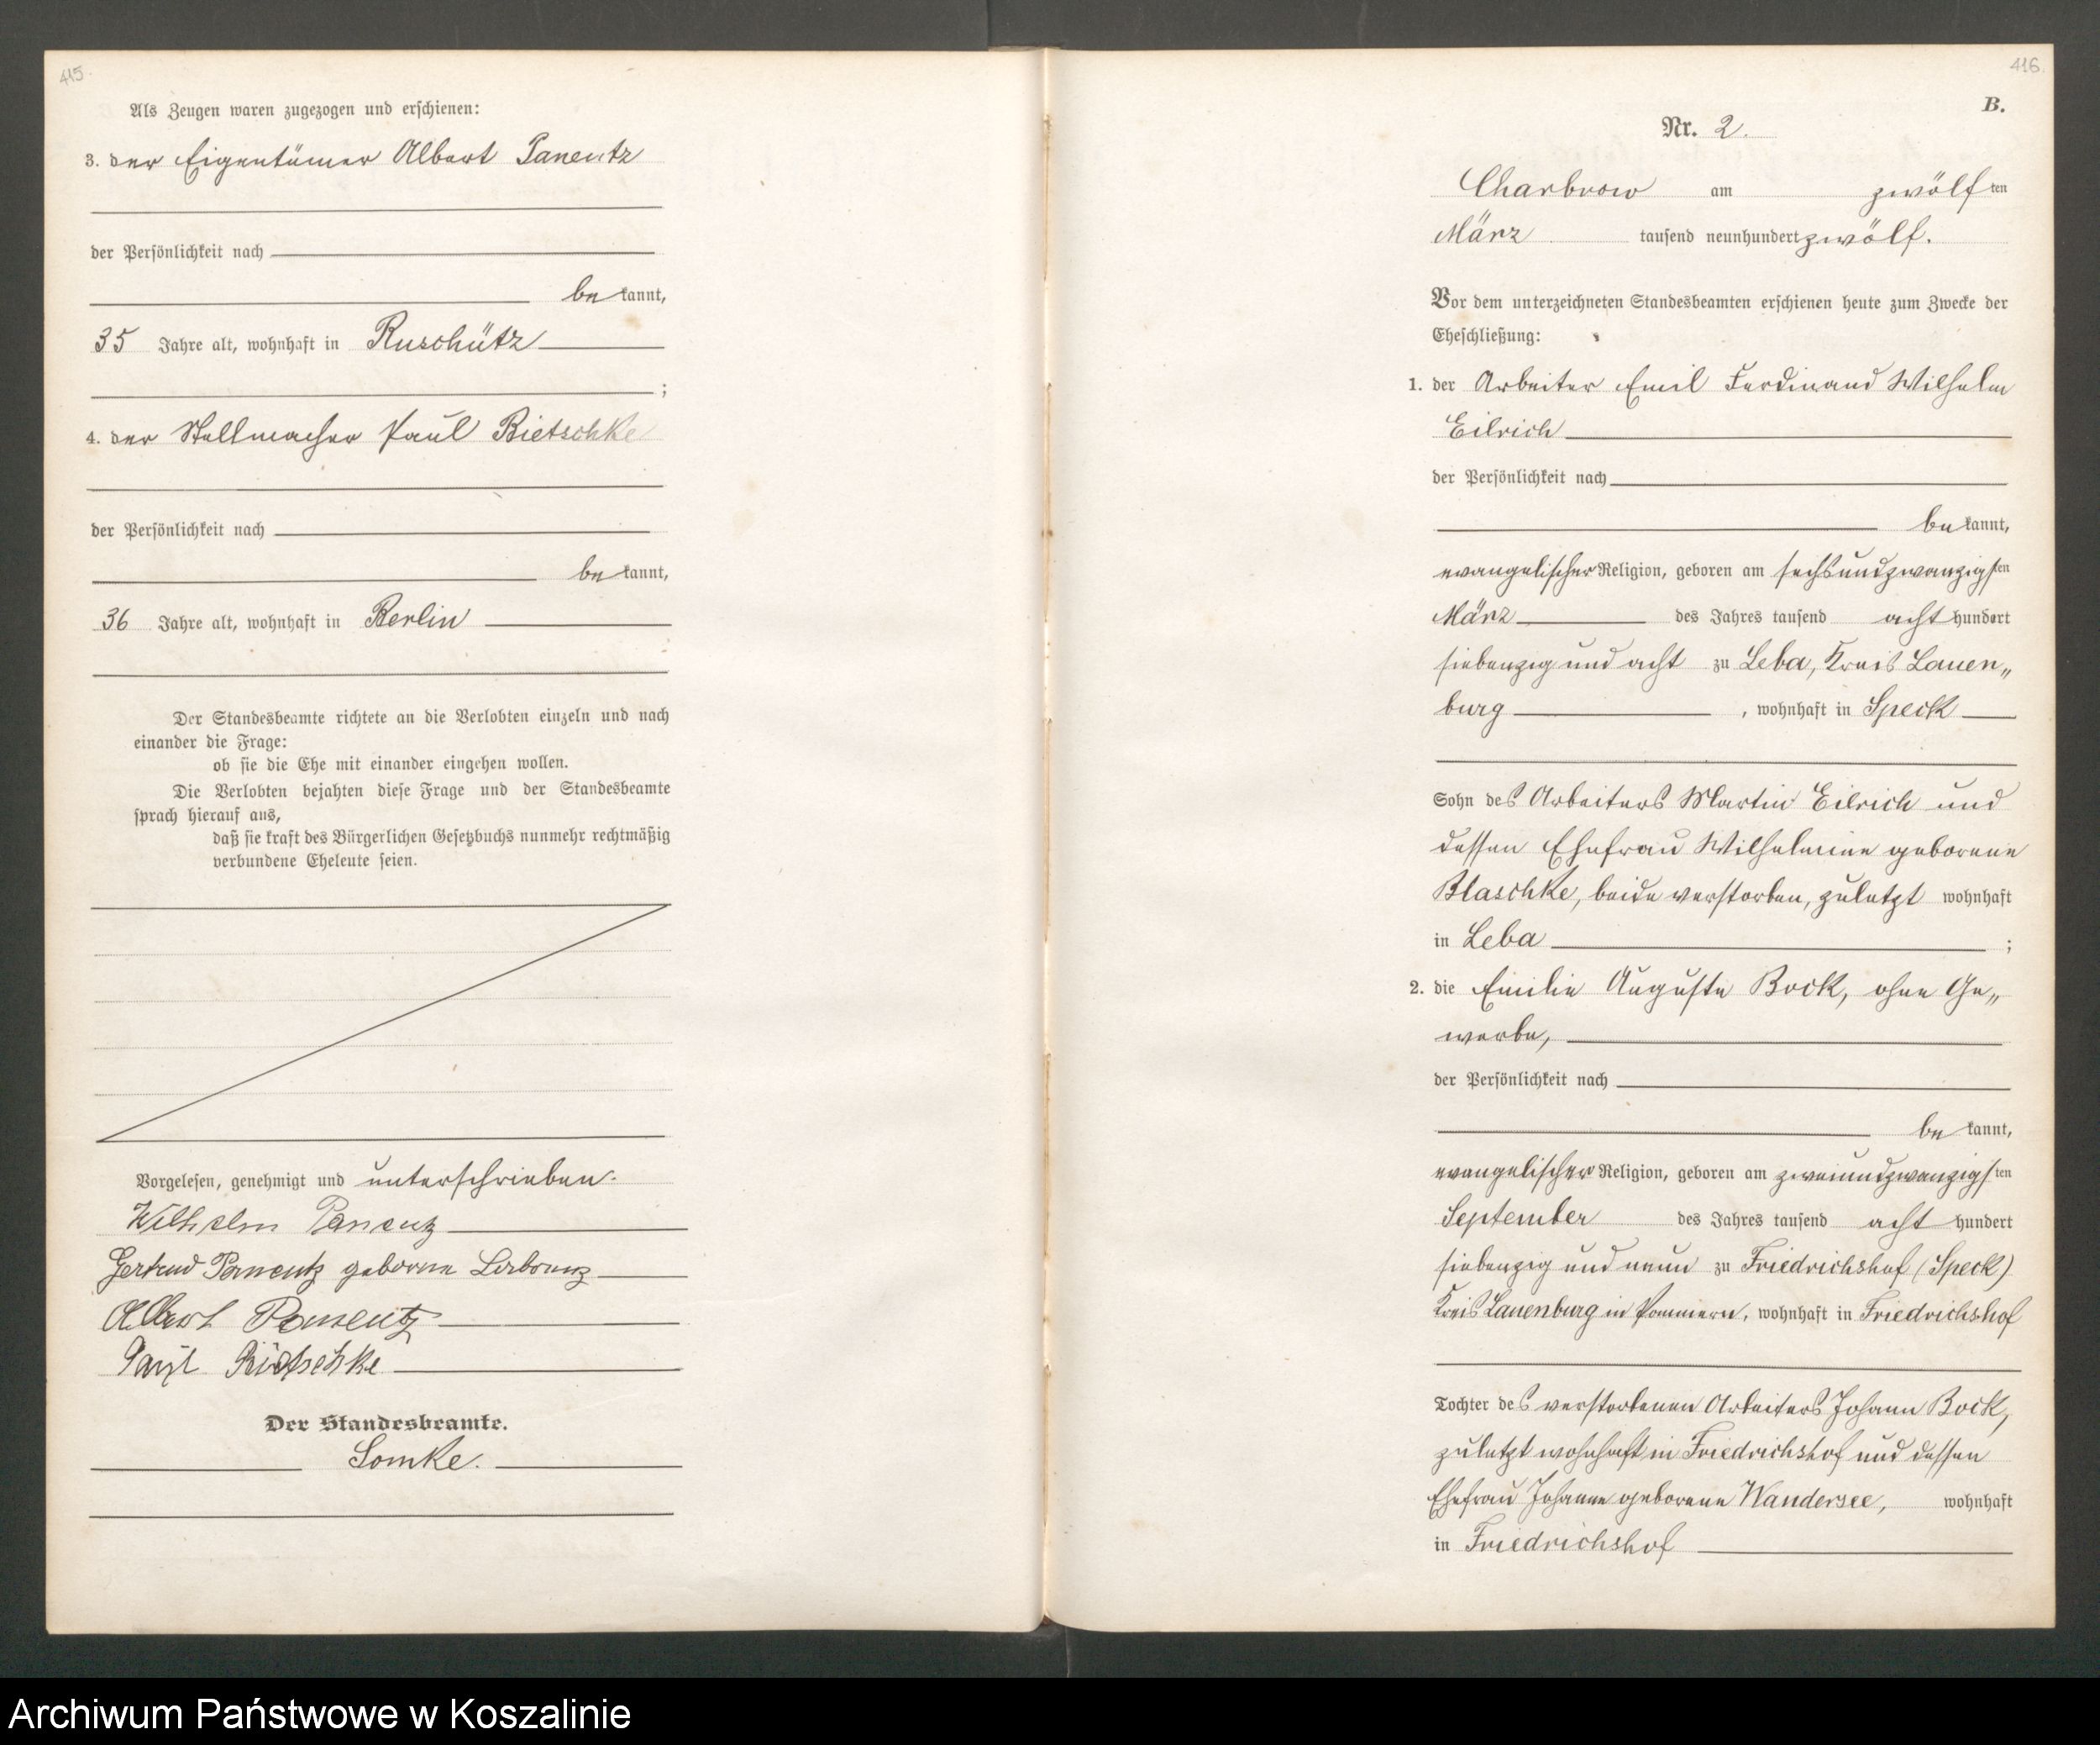 415.
Als Zeugen waren zugezogen und erschienen:
3. der Eigentümer Albert Panentz
der Persönlichkeit nach
be kannt,
35 Jahre alt, wohnhaft in Ruschütz
;
4. der Stellmacher Paul Rietschke
der Persönlichkeit nach
be kannt,
36 Jahre alt, wohnhaft in Berlin
Der Standesbeamte richtete an die Verlobten einzeln und nach
einander die Frage:
ob sie die Ehe mit einander eingehen wollen.
Die Verlobten bejahten diese Frage und der Standesbeamte
sprach hierauf aus,
daß sie kraft des Bürgerlichen Gesetzbuchs nunmehr rechtmäßig
verbundene Eheleute seien.
Vorgelesen, genehmigt und unterschrieben.
Wilhelm Panentz
Gertrud Panentz geborene
Albert Panentz
Paul Rietschke
Der Standesbeamte.
Somke.
416.
B.
Nr. 2.
Charbrow am zwölf ten
März tausend neunhundert zwölf.
Vor dem unterzeichneten Standesbeamten erschienen heute zum Zwecke der
Eheschließung:
1. der Arbeiter Emil Ferdinand Wilhelm
Eilrich
der Persönlichkeit nach
be kannt,
evangelischer Religion, geboren am sechsundzwanzigsten
März des Jahres tausend acht hundert
siebenzig und acht zu Leba, Kreis Lauen„
burg , wohnhaft in Speck
Sohn des Arbeiters Martin Eilrich und
dessen Ehefrau Wilhelmine geborene
Blaschke, beide verstorben, zuletzt wohnhaft
in Leba ;
2. die Emilie Auguste Bock, ohne Ge„
werbe,
der Persönlichkeit nach
be kannt,
evangelischer Religion, geboren am zweiundzwanzigsten
September des Jahres tausend acht hundert
siebenzig und neun zu Friedrichshof (Speck)
Kreis Lauenburg in Pommern, wohnhaft in Friedrichshof
Tochter des verstorbenen Arbeiters Johann Bock,
zuletzt wohnhaft in Friedrichshof und dessen
Ehefrau Johanne geborene Wandersee, wohnhaft
in Friedrichshof
Archiwum Państwowe w Koszalinie